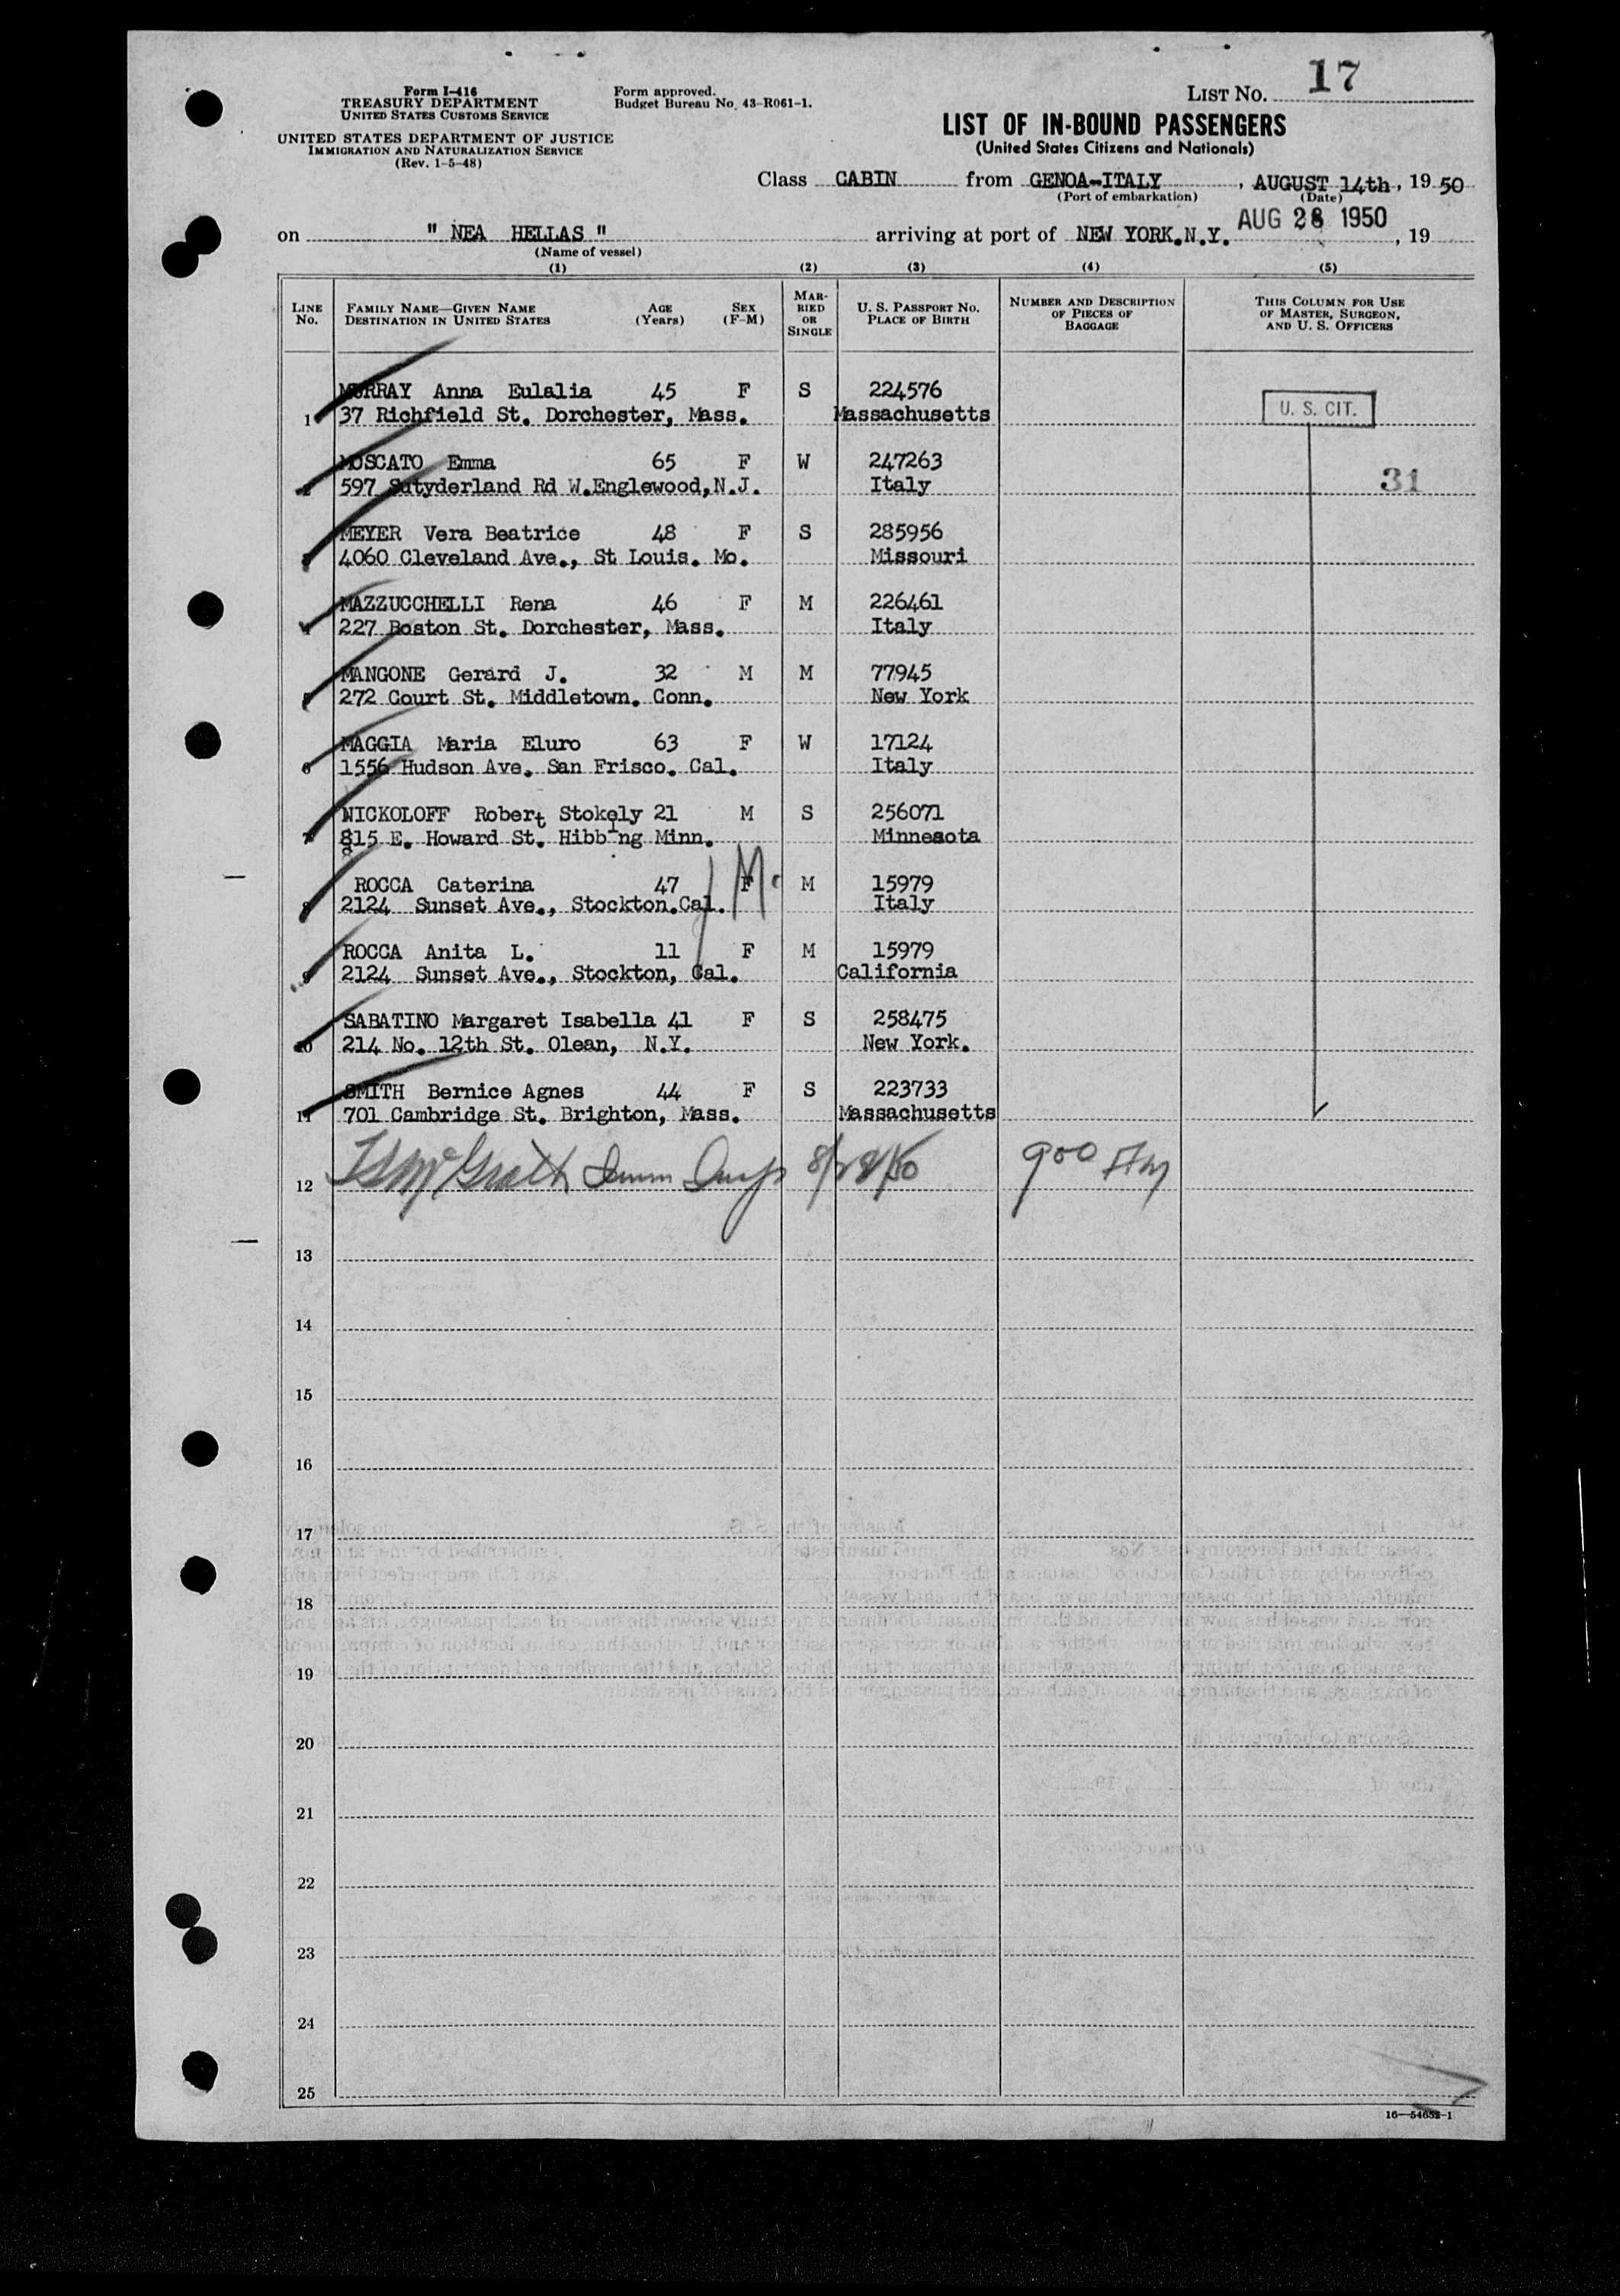 Form I-416
TREASURY DEPARTMENT
UNITED STATES CUSTOMS SERVICE
UNITED STATES DEPARTMENT OF JUSTICE
IMMIGRATION AND NATURALIZATION SERVICE
(Rev. 1-5-48)
Form approved.
Budget Bureau No. 43-R061-1.
LIST NO. 17
LIST OF IN-BOUND PASSENGERS
(United States Citizens and Nationals)
Class CABIN from GENOA-ITALY, AUGUST 14th, 19 50
(Port of embarkation) (Date)
on " NEA HELLAS " arriving at port of NEW YORK.N.Y. AUG 28 1950, 19
(Name of vessel)
(1) (2) (3) (4) (5)
LINE No. FAMILY NAME—GIVEN NAME DESTINATION IN UNITED STATES AGE (Years) SEX (F-M) MARRIED OR SINGLE U. S. PASSPORT NO. PLACE OF BIRTH NUMBER AND DESCRIPTION OF PIECES OF BAGGAGE THIS COLUMN FOR USE OF MASTER, SURGEON, AND U. S. OFFICERS
MURRAY Anna Eulalia 45 F S 224576
1 37 Richfield St. Dorchester, Mass. Massachusetts U. S. CIT.
MOSCATO Emma 65 F W 247263
2 597 Sutyderland Rd W.Englewood,N.J. Italy 31
MEYER Vera Beatrice 48 F S 285956
3 4060 Cleveland Ave., St Louis. Mo. Missouri
MAZZUCCHELLI Rena 46 F M 226461
4 227 Boston St. Dorchester, Mass. Italy
MANGONE Gerard J. 32 M M 77945
5 272 Court St. Middletown. Conn. New York
MAGGIA Maria Eluro 63 F W 17124
6 1556 Hudson Ave. San Frisco. Cal. Italy
NICKOLOFF Robert Stokely 21 M S 256071
7 815 E. Howard St. Hibbing Minn. Minnesota
ROCCA Caterina 47 F M. M 15979
8 2124 Sunset Ave., Stockton.Cal. Italy
ROCCA Anita L. 11 F M 15979
9 2124 Sunset Ave., Stockton, Cal. California
SABATINO Margaret Isabella 41 F S 258475
10 214 No. 12th St. Olean, N.Y. New York.
SMITH Bernice Agnes 44 F S 223733
11 701 Cambridge St. Brighton, Mass. Massachusetts
12 McGrath Imm Insp 8/28/50 900
13
14
15
16
17
18
19
20
21
22
23
24
25
16—54652-1